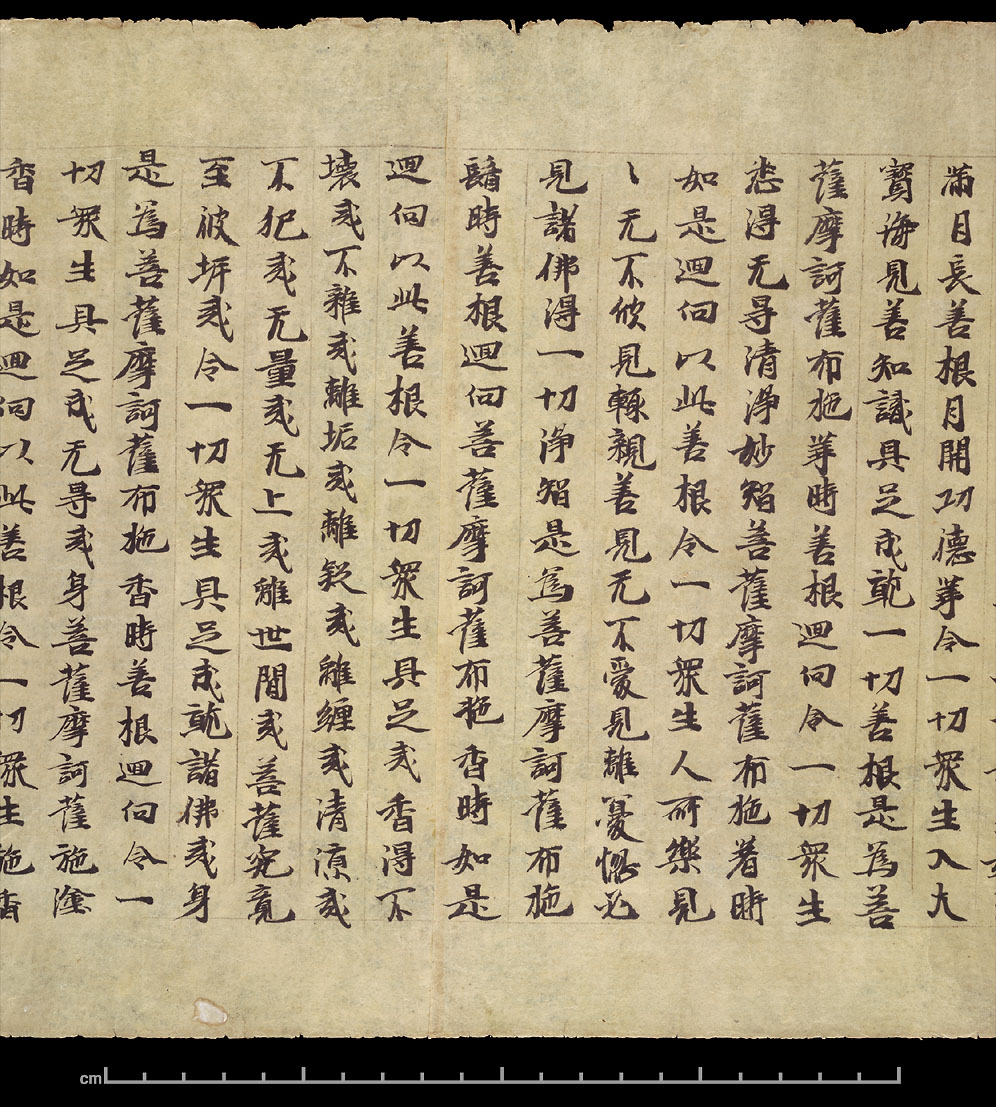 滿月長善根月開功德華令一切眾生入大
寶海見善知識具足成就一切善根是為菩
薩摩訶薩布施華時善根迴向令一切眾生
悉得无㝵清淨妙智菩薩摩訶薩布施著時
如是迴向以此善根令一切眾生人所樂見
〻无不欣見轢親善見无不愛見離憂惱必
見諸佛得一切淨智是為菩薩摩訶薩布施
鬘時善根迴向菩薩摩訶薩布施香時如是
迴向以此善根令一切眾生具足戒香得不
壞戒不雜戒離垢戒離疑戒離纏戒清涼戒
不犯戒无量戒无上戒離世間戒菩薩究竟
至彼岸戒令一切眾生具足成就諸佛戒身
是為菩薩摩訶薩布施香時善根迴向令一
切眾生具足成无㝵戒身菩薩摩訶薩施塗
香時如是迴向以此善根令一切眾生施香
cm